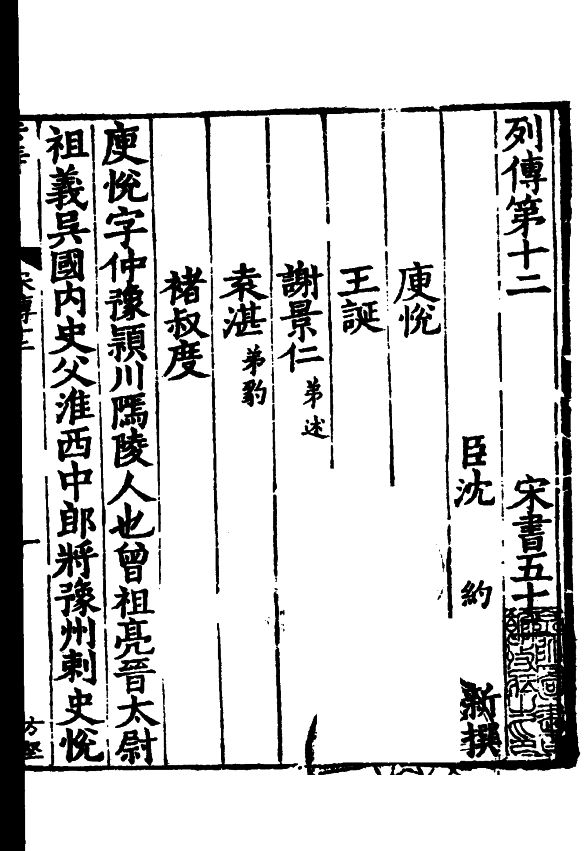 列傳第十二　宋書五十
臣沈約新撰
庾悅
王誕
謝景仁 弟述
袁湛 弟豹
褚叔度
庾悅字仲豫潁川隲陵人也曾祖亮晉太尉
祖義吳國內史父淮西中郎將豫州刺史悅
方堅